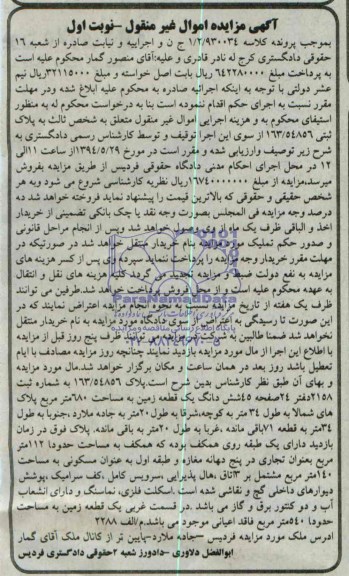 آگهی مزایده اموال غیر منقول -نوبت اول
بموجب پرونده کلاسه ۱/۲/۹۳۰۰۳٤ ج ن و اجراییه و نیابت صادره از شعبه ۱۶
حقوقی دادگستری کرج له نادر قادری و علیه:آقای منصور گمار محکوم علیه است
به پرداخت مبلغ ۶٤۲۲۸۰۰۰۰ ریال بابت اصل خواسته و مبلغ ۳۲۱۱۵۰۰۰ریال نیم
عشر دولتی با توجه به اینکه اجرائیه صادره به محکوم علیه ابلاغ شده ودر مهلت
مقرر نسبت به اجرای حکم اقدام ننموده است بنا به درخواست محکوم له به منظور
استیفای محکوم به و هزینه اجرایی اموال غیر منقول متعلق به شخص ثالث به پلاک
ثبتی ۱۶۳/۵٤۸۵۶ از سوی این اجرا توقیف و توسط کارشناس رسمی دادگستری به
شرح زیر توصیف وارزیابی شده و مقرر است در مورخ ۱۳۹٤/۵/۲۹از ساعت ۱۱الی
۱۲ در محل اجرای احکام مدنی دادگاه حقوقی فردیس از طریق مزایده بفروش
میرسد.مزایده از مبلغ ۱۶۷٤۰۰۰۰۰۰۰ریال نظریه کارشناسی شروع می شود وبه هر
شخص حقیقی و حقوقی که بالاترین قیمت را پیشنهاد نماید فروخته خواهد شد ده
درصد وجه مزایده فی المجلس بصورت وجه نقد یا چک بانکی تضمینی از خریدار
اخذ و الباقی ظرف یک ماه از وی وصول خواهد شد وپس از انجام مراحل قانونی
و صدور حکم تملیک مورد مزایده بنام خریدار منتقل خواهد شد در صورتیکه در
مهلت مقرر خریدار وجه مزایده را پرداخت ننماید سپرده وی پس از کسر هزینه های
مزایده به نفع دولت ضبط و مزایده تجدید می گردد کلیه هزینه های نقل و انتقال
به عهده محکوم علیه است و از محل فروش پرداخت خواهد شد.طرفین می توانند
ظرف یک هفته از تاریخ مزایده نسبت به نحوه انجام مزایده اعتراض نمایند که در
این صورت تا رسیدگی به اعتراض در دادگاه مورد مزایده به نام خریدار منتقل
نخواهد شد ضمنا طالبین به شرکت در مزایده می توانند ظرف پنج روز قبل از مزایده
با اطلاع این اجرا از مال مورد مزایده بازدید نمایند چنانچه روز مزایده مصادف با ایام
تعطیل باشد روز بعد در همان ساعت و مکان برگزار خواهد شد.مال مورد مزایده
و بهای آن طبق نظر کارشناس بدین شرح است.پلاک ۱۶۳/۵٤۸۵۶ به شماره ثبت
۲۱۵۸دفتر ۲٤صفحه ٤۵شش دانگ یک قطعه زمین به مساحت ۶۸۰متر مربع پلاک
های شمالا به طول ۳٤متر به کوچه،شرقا به طول ۲۰متر به جاده ملارد ،جنوبا به طول
۳٤متر به قطعه ۷۱باقی مانده ،غربا به طول ۲۰متر به باقی مانده. پلاک فوق در زمان
بازدید دارای یک طبقه روی همکف بوده که همکف به مساحت حدودا ۱۱۲متر
مربع بعنوان تجاری در پنج دهانه مغازه و طبقه اول به عنوان مسکونی به مساحت
۱٤۰متر مربع مشتمل بر ۳اتاق،هال پذیرایی ،سرویس کامل ،کف سرامیک ،پوشش
دیوارهای داخلی گچ و نقاشی شده است .اسکلت فلزی، نماسنگ و دارای انشعاب
آب و دو کنتور برق و گاز می باشد .در قسمت غربی یک قطعه زمین به مساحت
حدودا ۵٤۰متر مربع فاقد اعیانی موجود می باشد.م/الف ۲۲۸۸
ادرس ملک مورد مزایده فردیس –جاده ملارد–پایین تر از کانال ملک آقای گمار
ابوالفضل دلاوری –دادورز شعبه ۲حقوقی دادگستری فردیس
ParaNamadData
پایگاه اطلاع رسانی مناقصه و مزایده